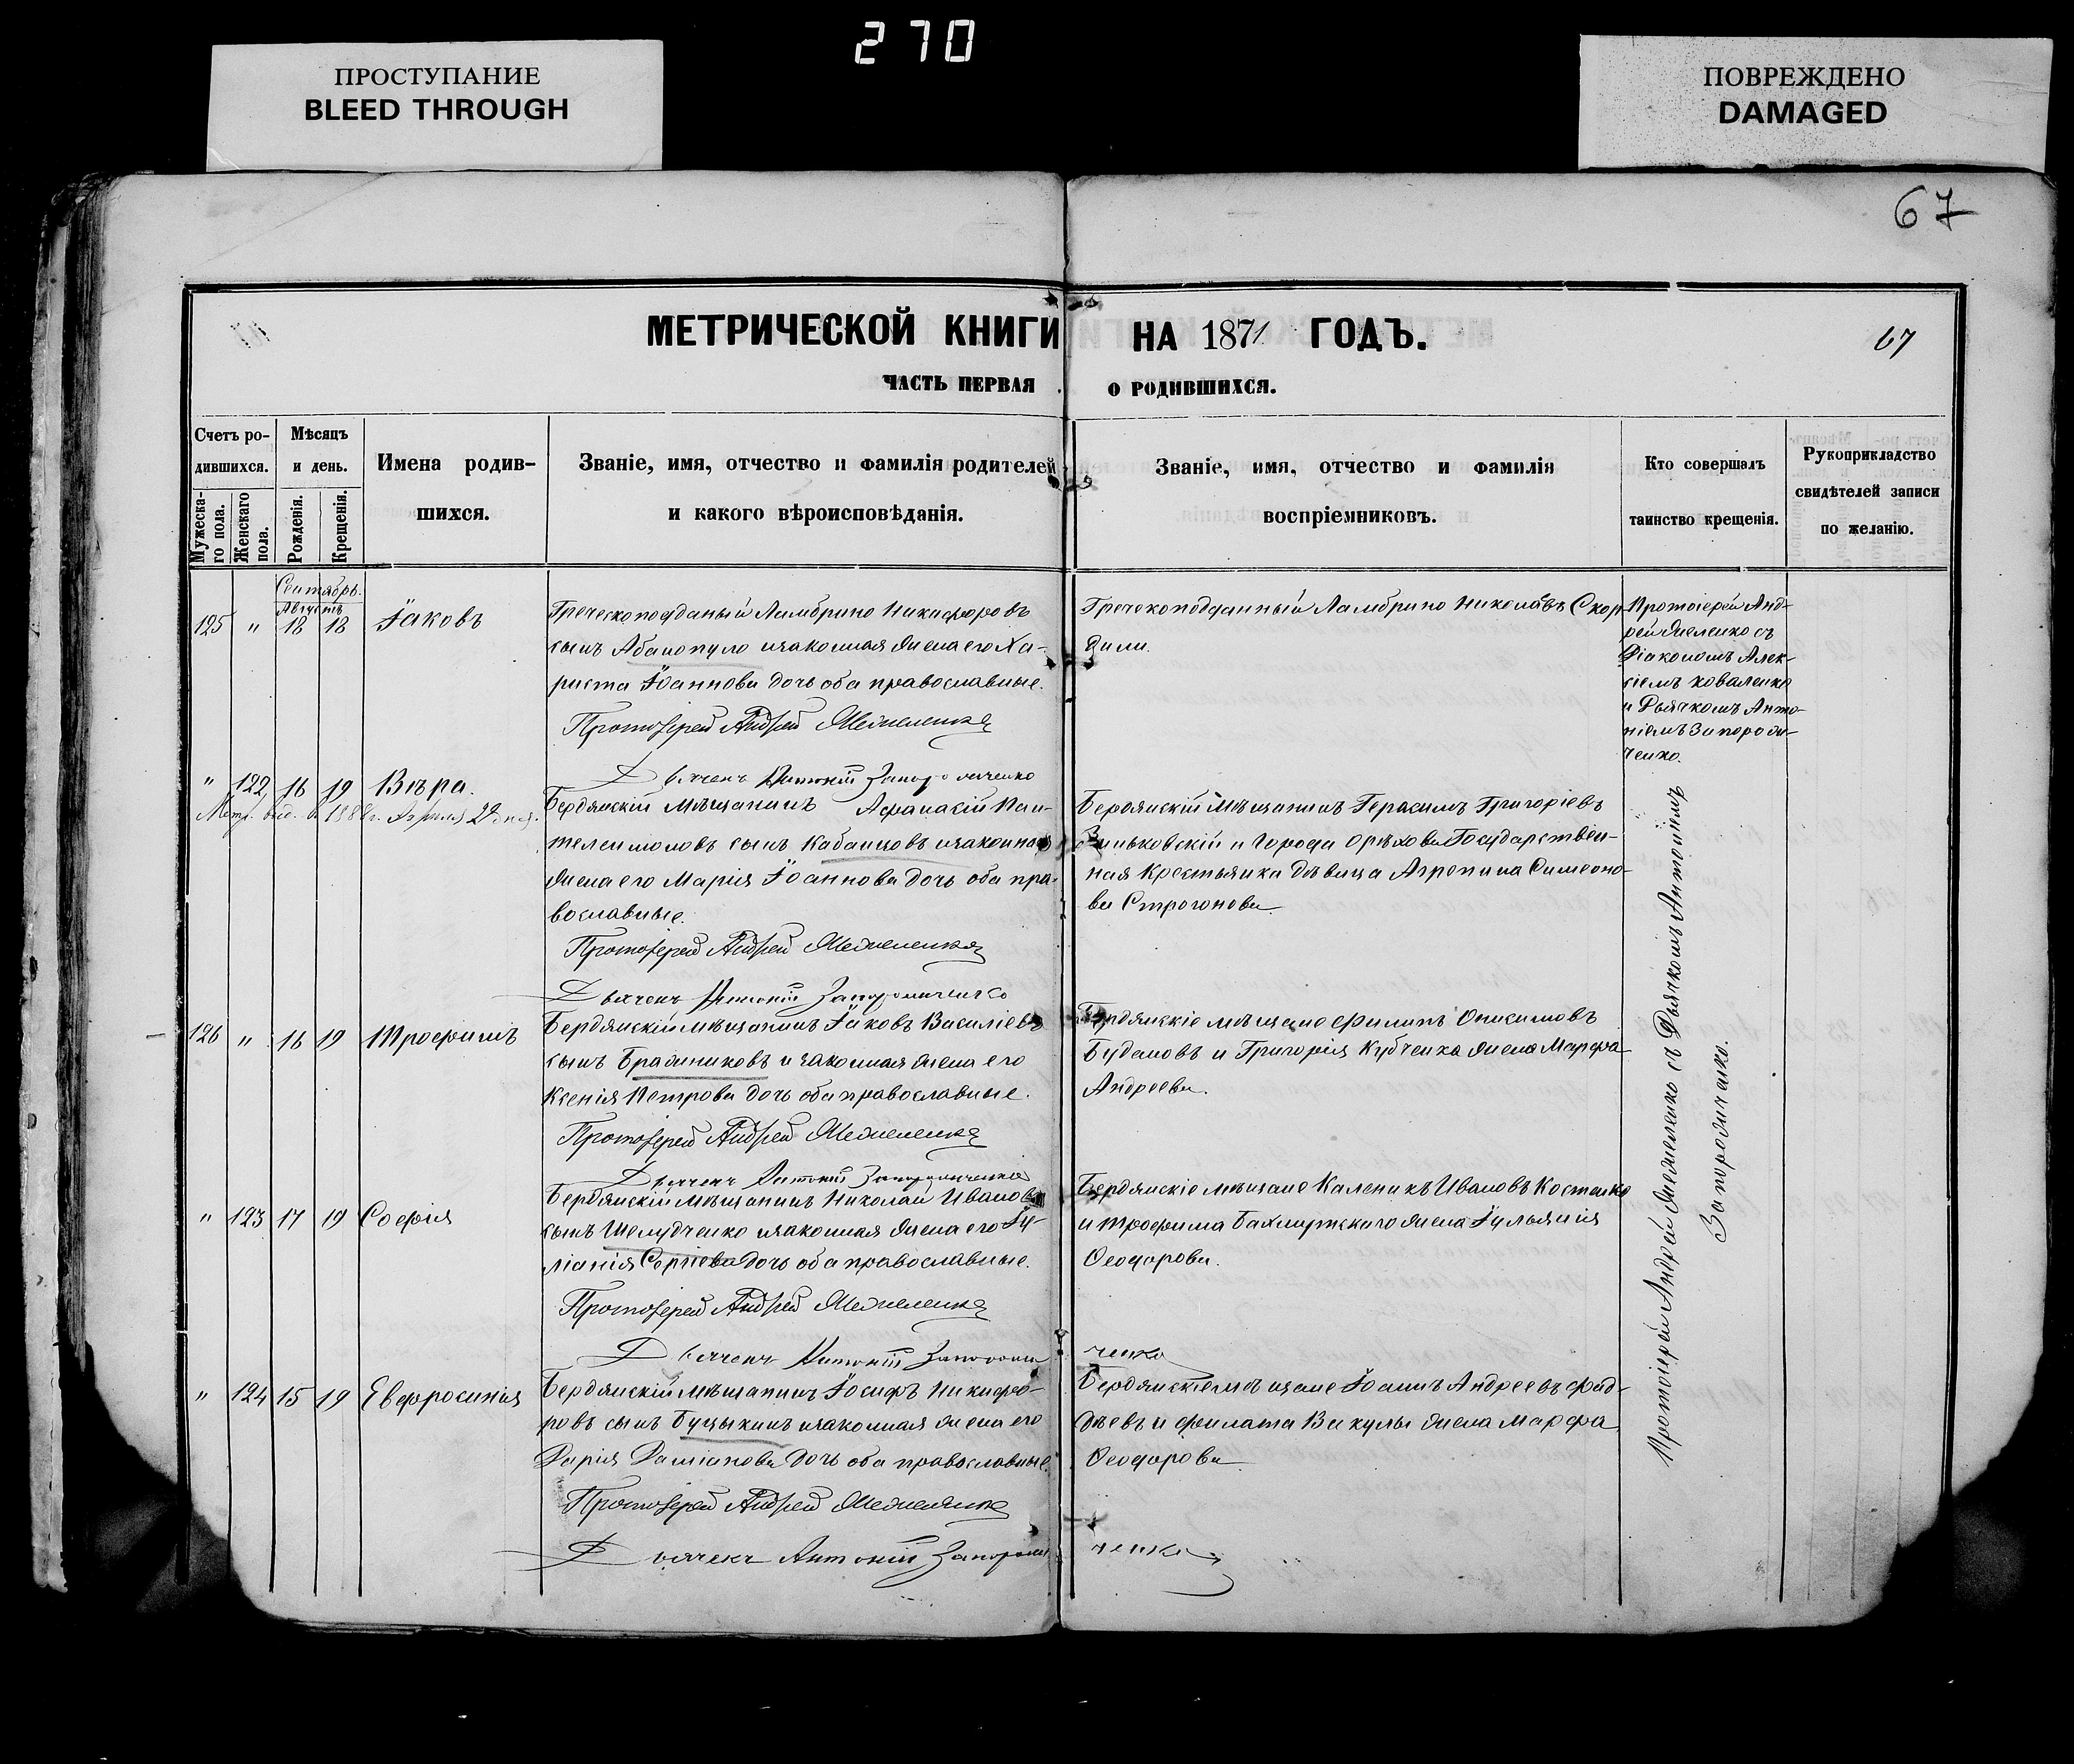 270
ПРОСТУПАНИЕ
BLEED THROUGH
ПОВРЕЖДЕНО
DAMAGED
67
МЕТРИЧЕСКОЙ КНИГИ НА 1871 ГОДЪ.
67
ЧАСТЬ ПЕРВАЯ О РОДИВШИХСЯ.
Счетъ ро-
дившихся.
Мужеска-
го пола.
Женскаго
пола.
Мѣсяцъ
и день.
Рожденія.
Крещенія.
Имена родив-
шихся.
Званіе, имя, отчество и фамилія родителей
и какого вѣроисповѣданія.
Званіе, имя, отчество и фамилія
воспріемниковъ.
Кто совершалъ
таинство крещенія.
Рукоприкладство
свидѣтелей записи
по желанію.
Сентябрь.
Августъ
125 " 18 18 Іаковъ
Греческоподданый Ламбрино Никифоровъ
сынъ Абанопуло и законная жена его Ха-
риста Іоаннова дочь оба православные.
Протоіерей Андрей
Дьячекъ Антоній Запорожченко
Грекоподданный Ламбрино Николавъ Скор-
дили.
Протоіерей Анд-
рей
Діакономъ Алек-
сіемъ Коваленко
и Дьячкомъ Анто-
ніемъ Запорож-
ченко.
" 122 16 19 Вѣра.
Метр. выд. в 1888 г. Апреля 22 дня.
Бердянскій Мѣщанинъ Афанасій Пан-
телеимоновъ сынъ Кабанцовъ и законная
жена его Марія Іоаннова дочь оба пра-
вославные.
Протоіерей Андрей
Дьячекъ Антоній Запорожченко
Бердянскій Мѣщанинъ Герасимъ Григоріевъ
Зиньковскій и города Орѣхова Государствен-
ная Крестьянка дѣвица Агрепина Симеоно-
ва Строгонова.
126 " 16 19 Трофимъ
Бердянскій мѣщанинъ Іаковъ Василіевъ
сынъ Бражниковъ и законная жена его
Ксенія Петрова дочь оба православные.
Протоіерей Андрей
Дьячекъ Антоній Запорожченко
Бердянскіе мѣщане Филипъ Онисимовъ
Будановъ и Григорія Кубченка жена Марфа
Андреева.
" 123 17 19 Софія
Бердянскій мѣщанинъ Николай Ивановъ
сынъ Шелудченко и законная жена его Іу-
ліанія Сергіева дочь оба православные.
Протоіерей Андрей
Дьячекъ Антоній Запорож
ченко
Бердянскіе мѣщане Каленикъ Ивановъ Костенко
и Трофима Бахмутскаго жена Іульянія
Ѳеодорова.
" 124 15 19 Евфросинія
Бердянскій мѣщанинъ Іосифъ Никифо-
ровъ сынъ Буцыкинъ и законная жена его
Дарія Даміанова дочь оба православные.
Протоіерей Андрей
Дьячекъ Антоній Запорож
ченко
Бердянскіе мѣщане Іоаннъ Андреевъ Фад-
дѣевъ и Филата Викулы жена Марфа
Ѳеодорова
Протоіерей Андрей съ Дьячкомъ Антоніемъ
Запорожченко.